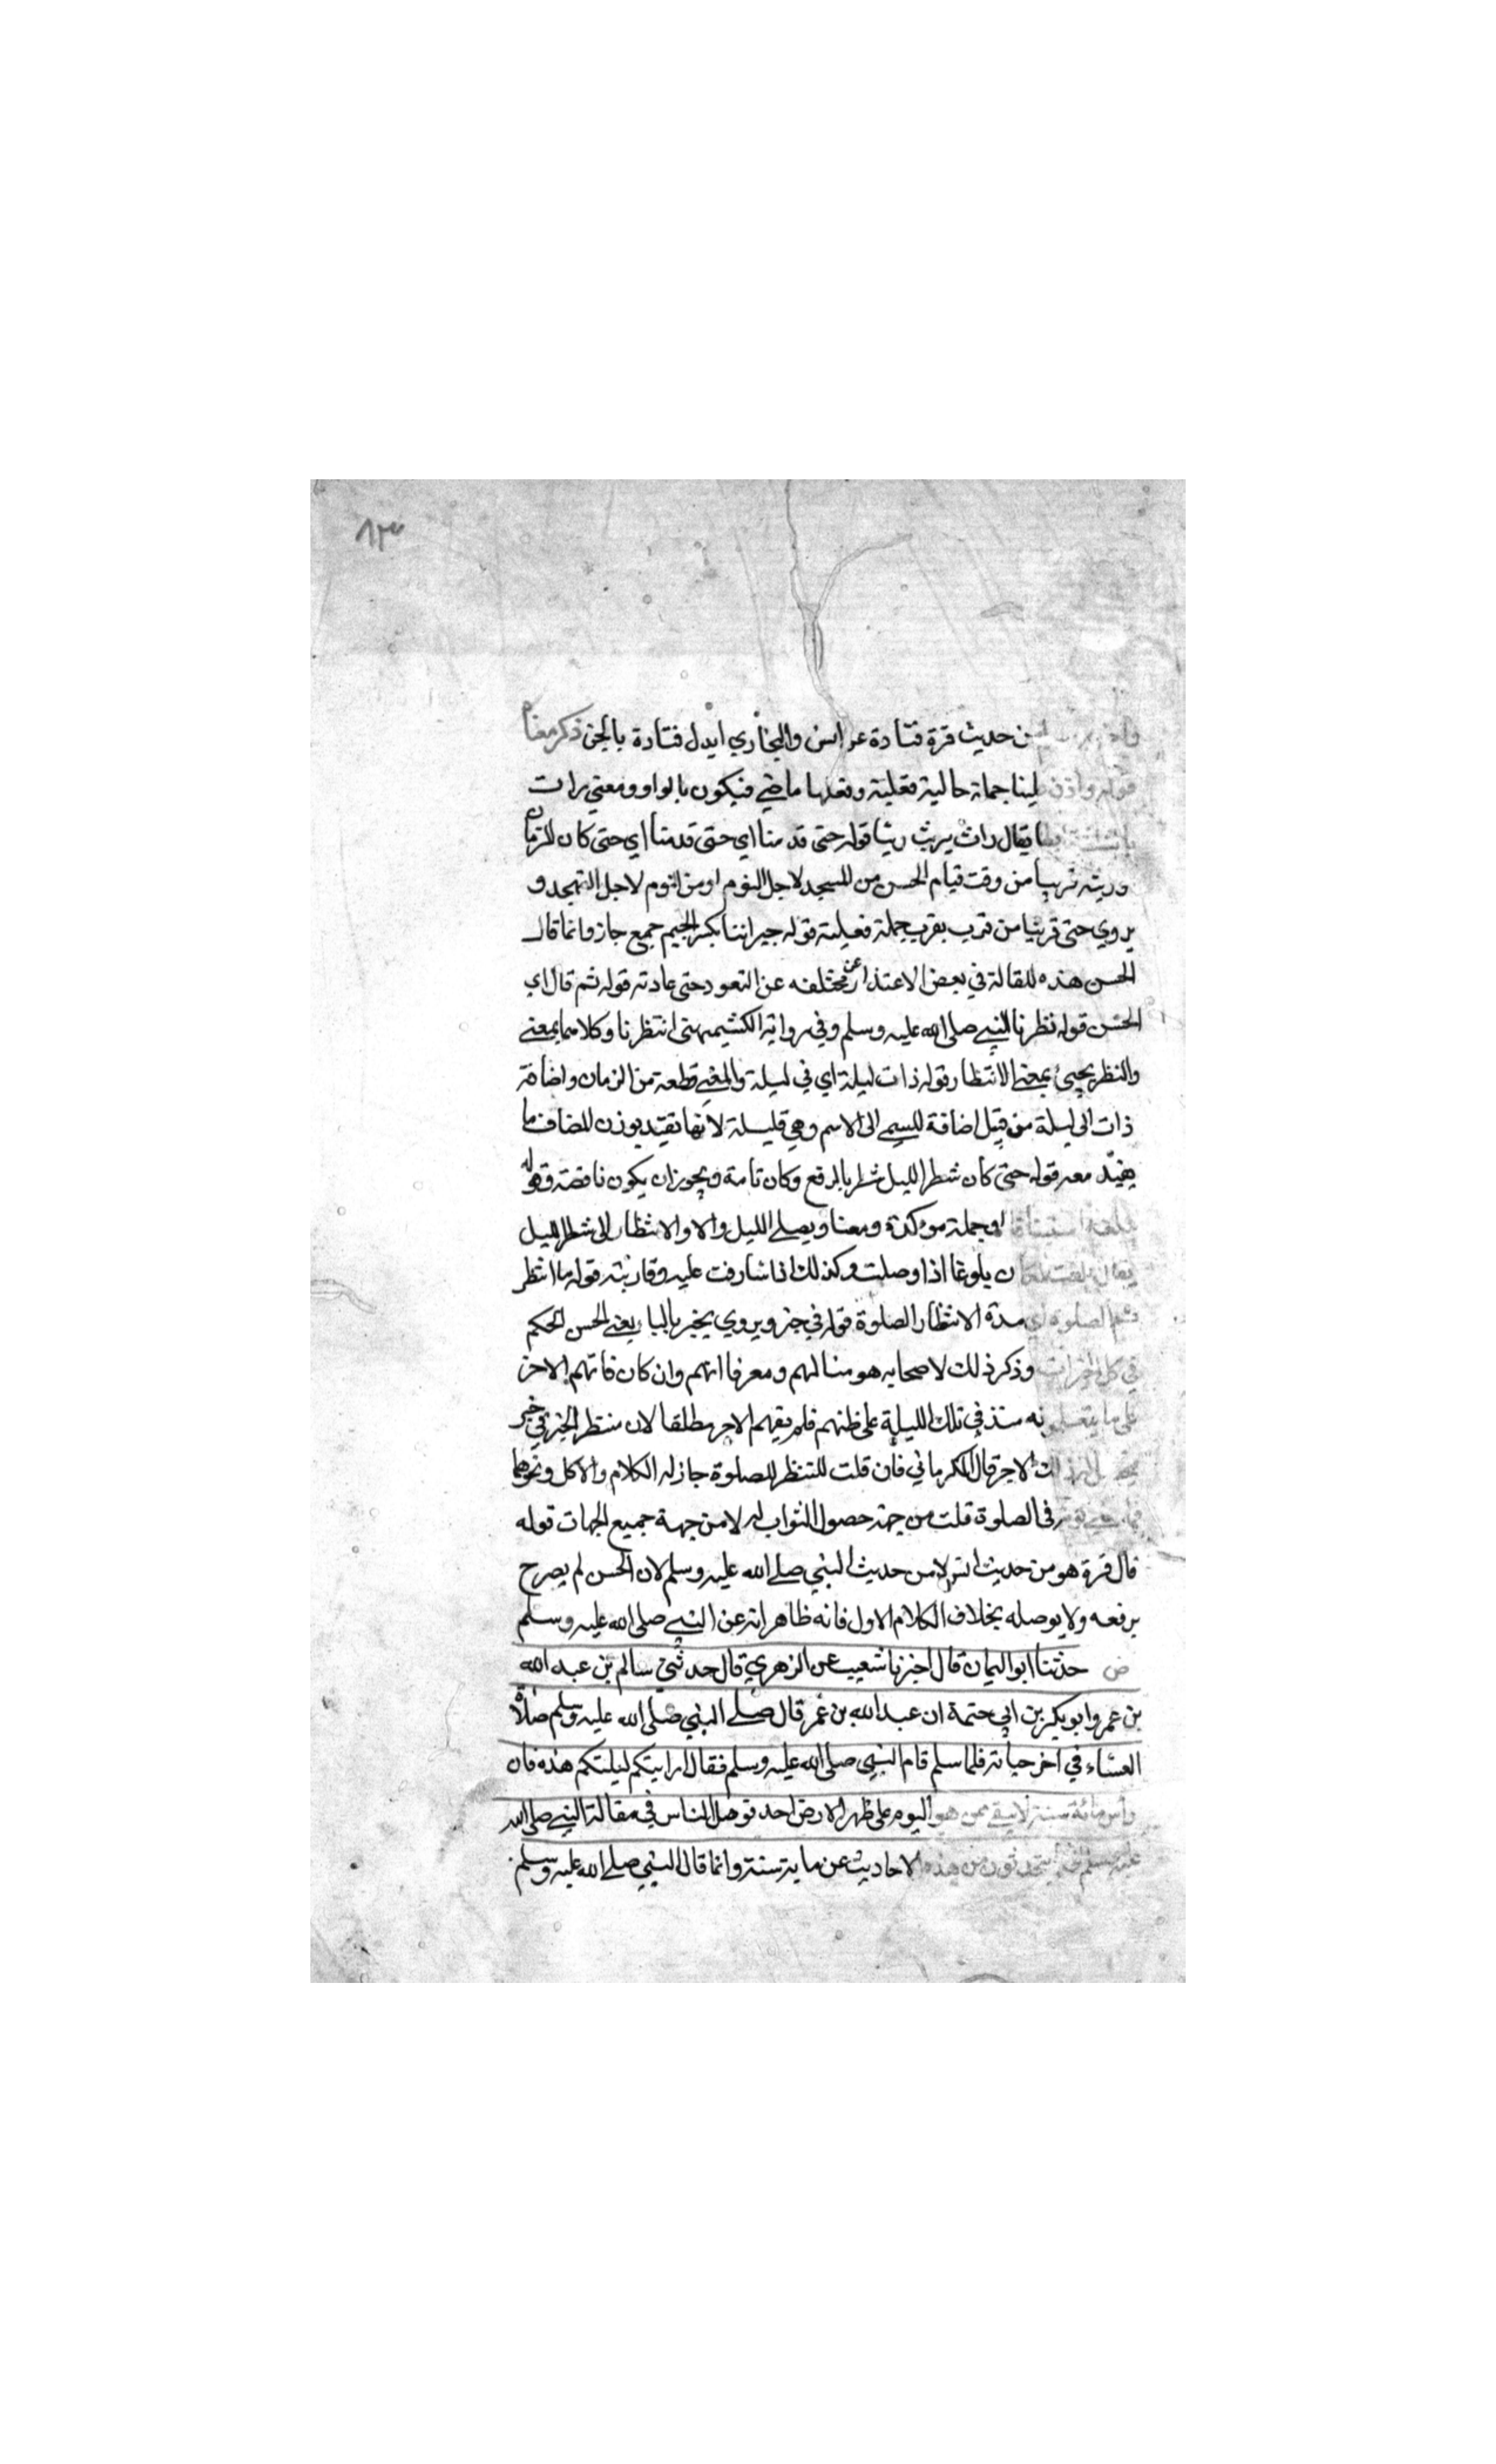 ٨٣
من حديث قرة قتادة عن انس والبخاري ابدل قتادة بالحن ذكر معناه
قوله واذن لينا جملة حالية فعلية وفعلها ماضي فيكون بالواو ومعني راث
يقال راث يريث ريثا قوله حتى قدمنا اي حتى قدمنا اي حتى كان الزمان
وريثه قريبا من وقت قيام الحسن من المسجد لاجل النوم او من النوم لاجل التهجد و
يروي حتى قريبا من قرب يقرب جملة فعيلية قوله جيراننا بكسر الجيم جمع جار وانما قال
الحسن هذه المقالة في بعض الاعتذار عن مختلفه عن القعود حتى عادته قوله ثم قال اي
الحسن قوله نظرنا النبي صلى الله عليه وسلم وفي رواية الكشيميهنى انتظرنا وكلاهما بمعنى
والنظر يجيئ بمعنى الانتظار قوله ذات ليلة اي في ليلة والمغني قطعة من الزمان واضافة
ذات الى ليلة من قبل اضافة المسمى الى الاسم وهي قليلة لانها تقيد بوزن المضاف ما
يفيد معه قوله حتى كان شطر الليل شطر بالرفع وكان تامة ويجوز ان يكون ناقصة وقوله
يبلغه استينافا او جملة موكدة ومعناه ويصلى الليل والا والانتظار الى شطر الليل
يقال بلغت المكان بلوغا اذا وصلت وكذلك اذا شارفت عليه وقاربته قوله ما انتظر
تم الصلوة اي مدة الانتظار الصلوة قوله في خير ويروي بخير بالبا يعني الحسن الحكم
في كل الخيرات وذكر ذلك لاصحابه هو منا لهم ومعرفا انهم وان كان فاتهم الاخر
على ما يتعلمونه منذ في تلك الليلة على ظنهم فلم يفهم الاجر مطلقا لان منتظر الخير في خير
لك الاجر قال الكرماني فان قلت المنتظر للصلوة جاز له الكلام والاكل ونحوهما
في الصلوة قلت من جهة حصول الثواب له لا من جهة جميع الجهات قوله
قال قرة هو من حديث انس لا من حديث النبي صلى الله عليه وسلم لان الحسن لم يصرح
برفعه ولا يوصله بخلاف الكلام الاول فانه ظاهر انه عن النبي صلى الله عليه وسلم
ص حدثنا ابو اليمان قال اخبرنا شعيب عن الزهري قال حدثني سالم بن عبد الله
بن عمر وابو بكر بن ابي حتمة ان عبد الله بن عمر قال صلى النبي صلى الله عليه وسلم صلاة
العشاء في اخر حياته فلما سلم قام النبي صلى الله عليه وسلم فقال ارايتكم ليلتكم هذه فان
رأس مائة سنة لا يبقى ممن هو اليوم على ظهر الارض احد فوهل الناس في مقالة النبي صلى الله
عليه وسلم يتحدثون من هذه الاحاديث عن ماية سنة وانما قال النبي صلى الله عليه وسلم